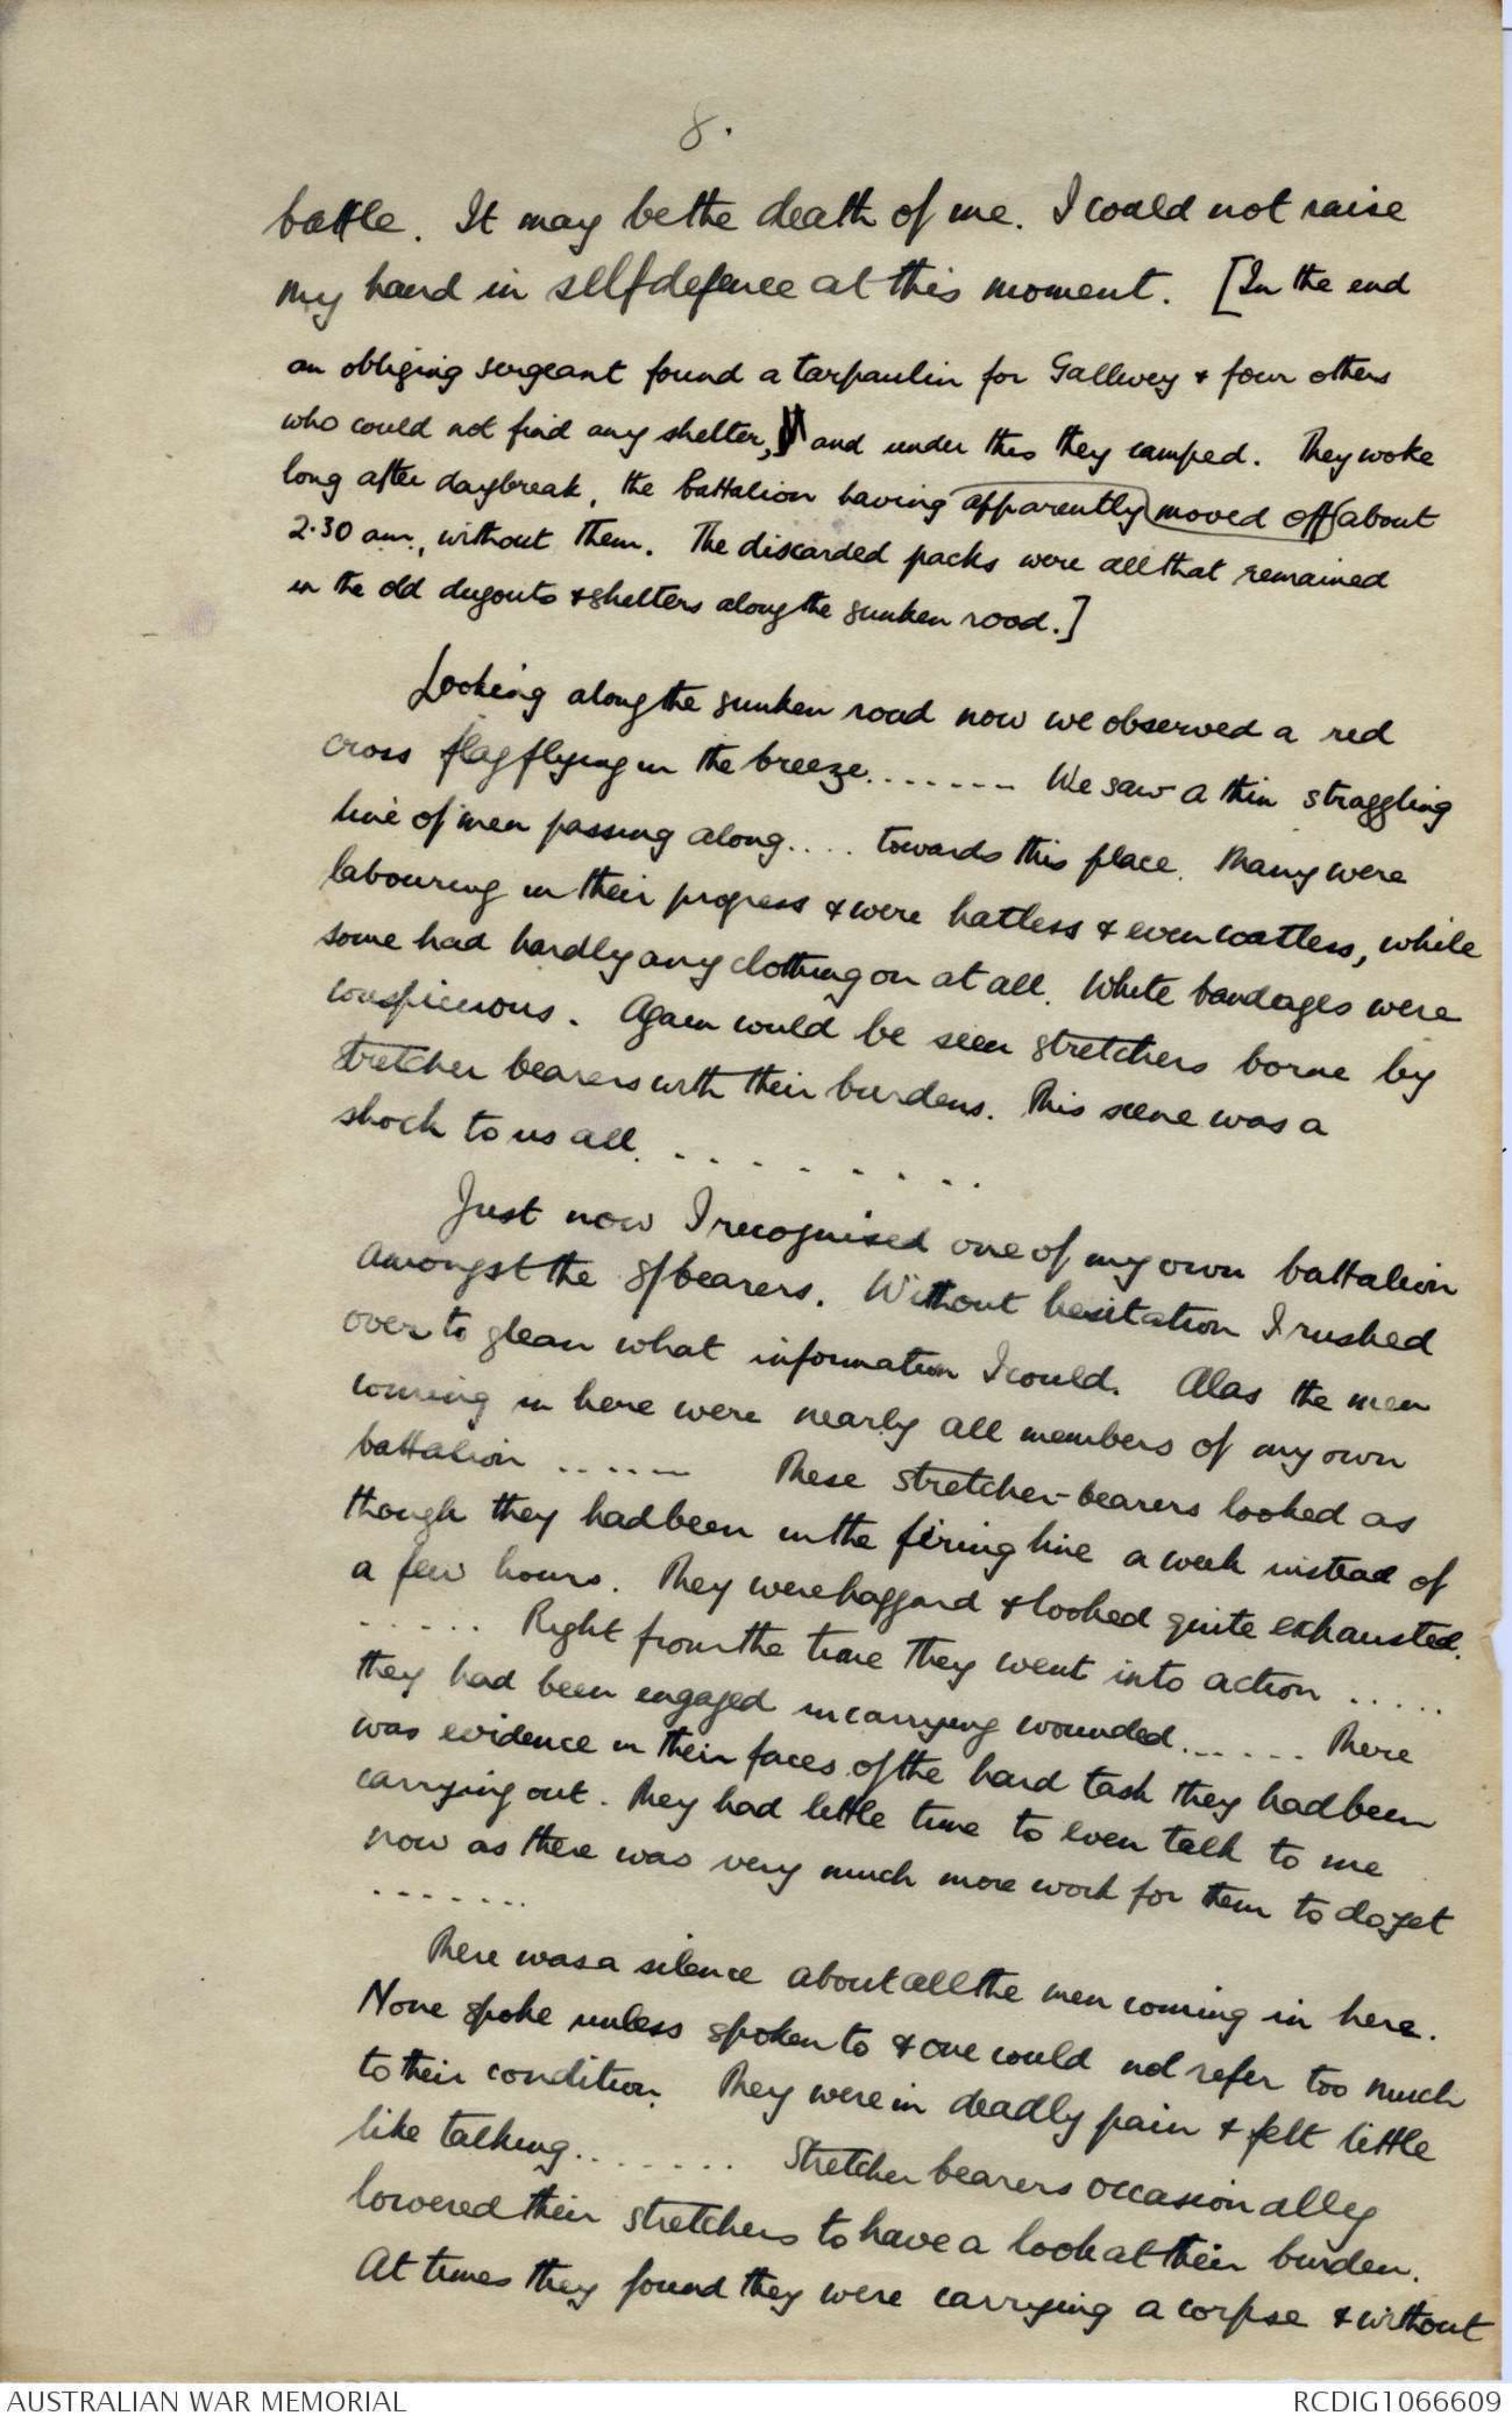 8.
battle. It may be the death of me. I could not raise
my hand in self defence at this moment. [In the end
an obliging sergeant found a tarpaulin for Gallwey & four others
who could not find any shelter, and under this they camped. They woke
long after daybreak, the battalion having apparently moved off about
2.30 am., without them. The discarded packs were all that remained
in the old dugouts & shelters along the sunken road.]
Looking along the sunken road now we observed a red
cross flag flying in the breeze........ We saw a thin straggling
line of men passing along.... towards this place. Many were
labouring in their progress & were hatless & even coatless, while
some had hardly any clothing on at all. White bandages were
conspicuous. Again would be seen stretchers borne by
stretcher bearers with their burdens. This scene was a
shock to us all. . . . . . . . . .
Just now I recognised one of my own battalion
amongst the s/bearers. Without hesitation I rushed
over to glean what information I could. Alas the men
coming in here were nearly all members of my own
battalion ...... These stretcher-bearers looked as
though they had been in the firing line a week instead of
a few hours. They were haggard & looked quite exhausted.
..... Right from the time they went into action .....
they had been engaged in carrying wounded....... There
was evidence in their faces of the hard task they had been
carrying out. They had little time to even talk to me
now as there was very much more work for them to do yet
.......
There was a silence about all the men coming in here.
None spoke unless spoken to & one could not refer too much
to their condition. They were in deadly pain & felt little
like talking........ Stretcher bearers occasionally
lowered their stretchers to have a look at their burden.
At times they found they were carrying a corpse & without
AUSTRALIAN WAR MEMORIAL
RCDIG1066609